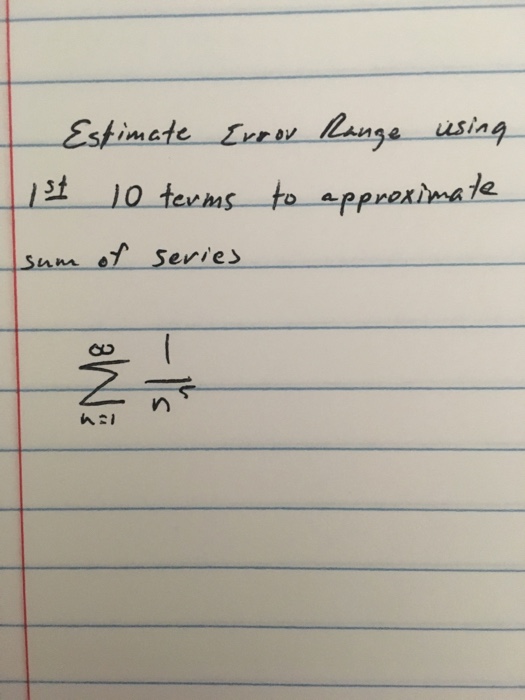 Estimate Error Range using
1st 10 terms to approximate
sum of series
∞
∑ 1/n⁵
n=1